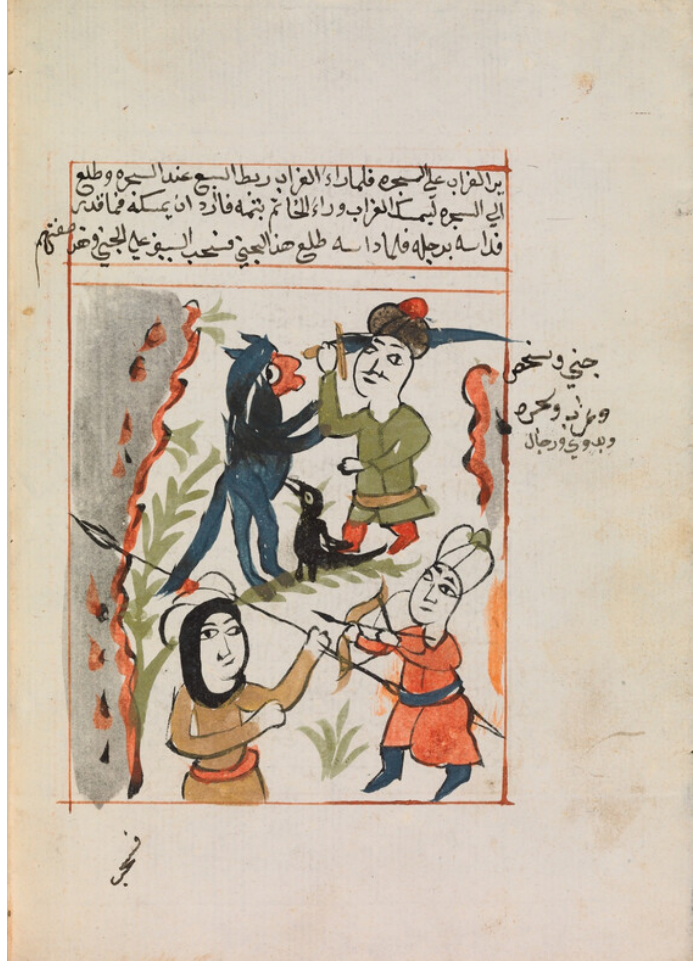 ير الغراب علي السجره فلما راء الغراب ربط السبع عند السجره وطلع
الي السجره ليمسك الغراب وراء الخاتم بتمه فارد ان يمسكه فما قدر
فداسه برجله فلما داسه طلع هذا الجني فسحب السيف علي الجني وهذه صفتهم
جني وشخص
وغراب وشجره
وبدوي ورجال
فسحب